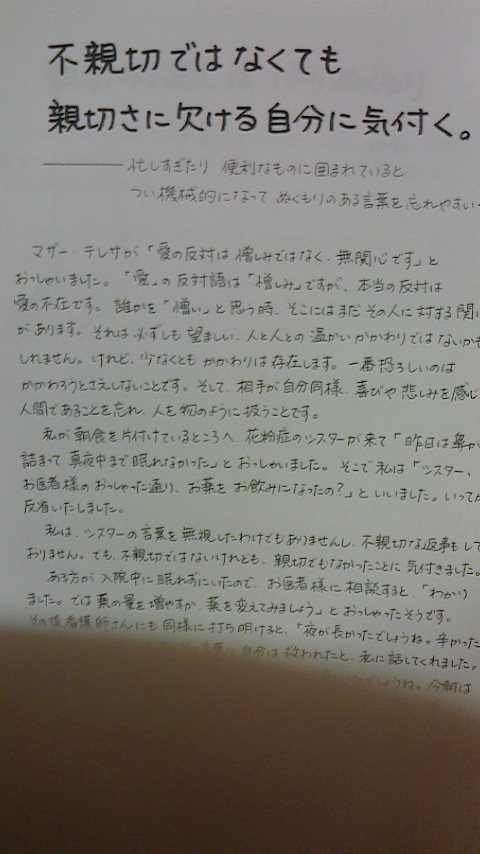 不親切ではなくても
親切さに欠ける自分に気付く。
忙しすぎたり 便利なものに囲まれていると
つい機械的になって ぬくもりのある言葉を忘れやすい
マザー・テレサが「愛の反対は憎しみではなく、無関心です」と
おっしゃいました。「愛」の反対語は「憎しみ」ですが、本当の反対は
愛の不在です。誰かを「憎い」と思う時、そこにはまだその人に対する関
があります。それは必ずしも望ましい、人と人との温かいかかわりではないかも
しれません。けれど、少なくともかかわりは存在します。一番恐ろしいのは
かかわろうとさえしないことです。そして、相手が自分同様、喜びや悲しみを感じ
人間であることを忘れ、人を物のように扱うことです。
私が朝食を片付けているところへ、花粉症のシスターが来て「昨日は鼻が
詰まって、真夜中まで眠れなかった」とおっしゃいました。そこで私は「シスター、
お医者様のおっしゃった通り、お薬をお飲みになったの?」といいました。いってか
反省いたしました。
私は、シスターの言葉を無視したわけでもありませんし、不親切な返事もして
おりません。でも、不親切ではないけれども、親切でもなかったことに気付きました。
ある方が入院中に眠れずにいたので、お医者様に相談すると、「わかり
ました。では薬の量を増やすか、薬を変えてみましょう」とおっしゃったそうです。
その後看護師さんにも同様に打ち明けると、「夜が長かったでしょうね。辛かった
に自分は救われたと、私に話してくれました。
でしょうね。今朝は